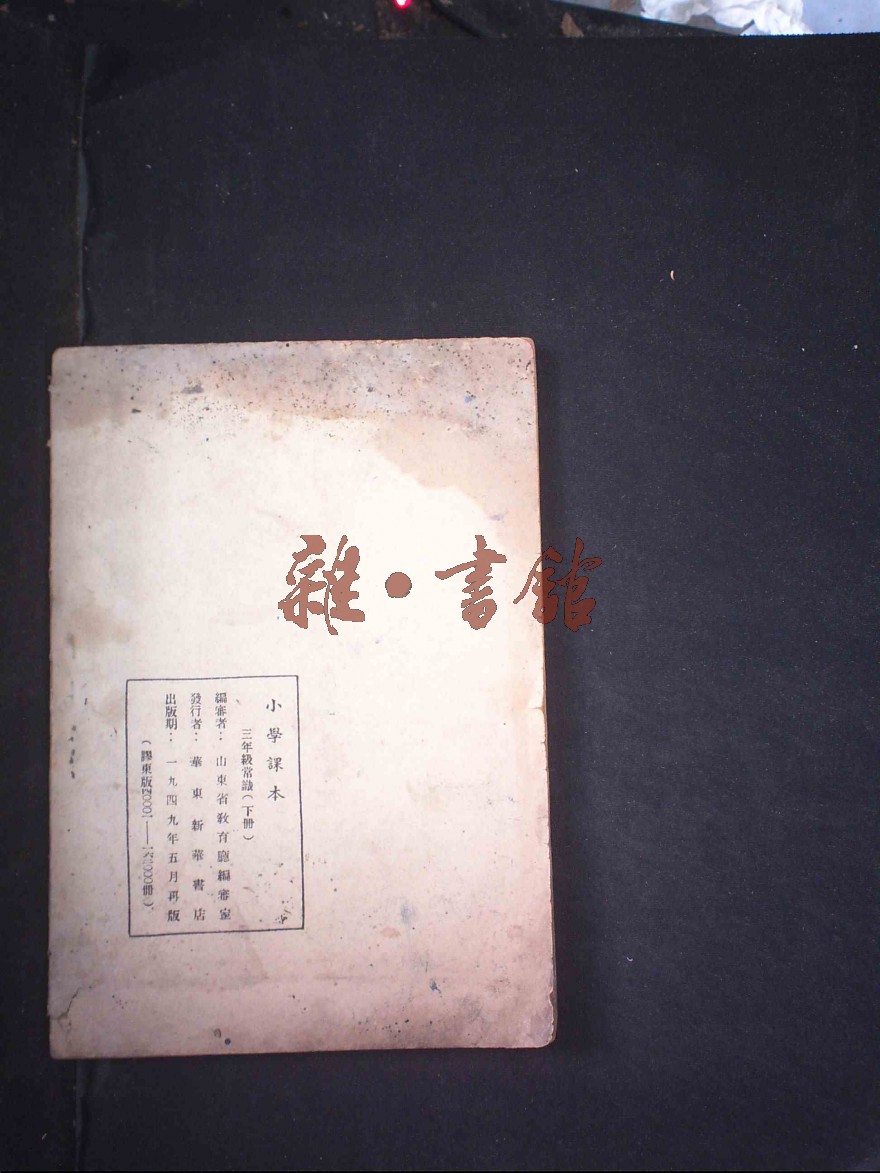 雜·書館
小學課本
三年級常識(下冊)
編審者：山東省教育廳編審室
發行者：華東新華書店
出版期：一九四九年五月再版
(膠東版
冊)